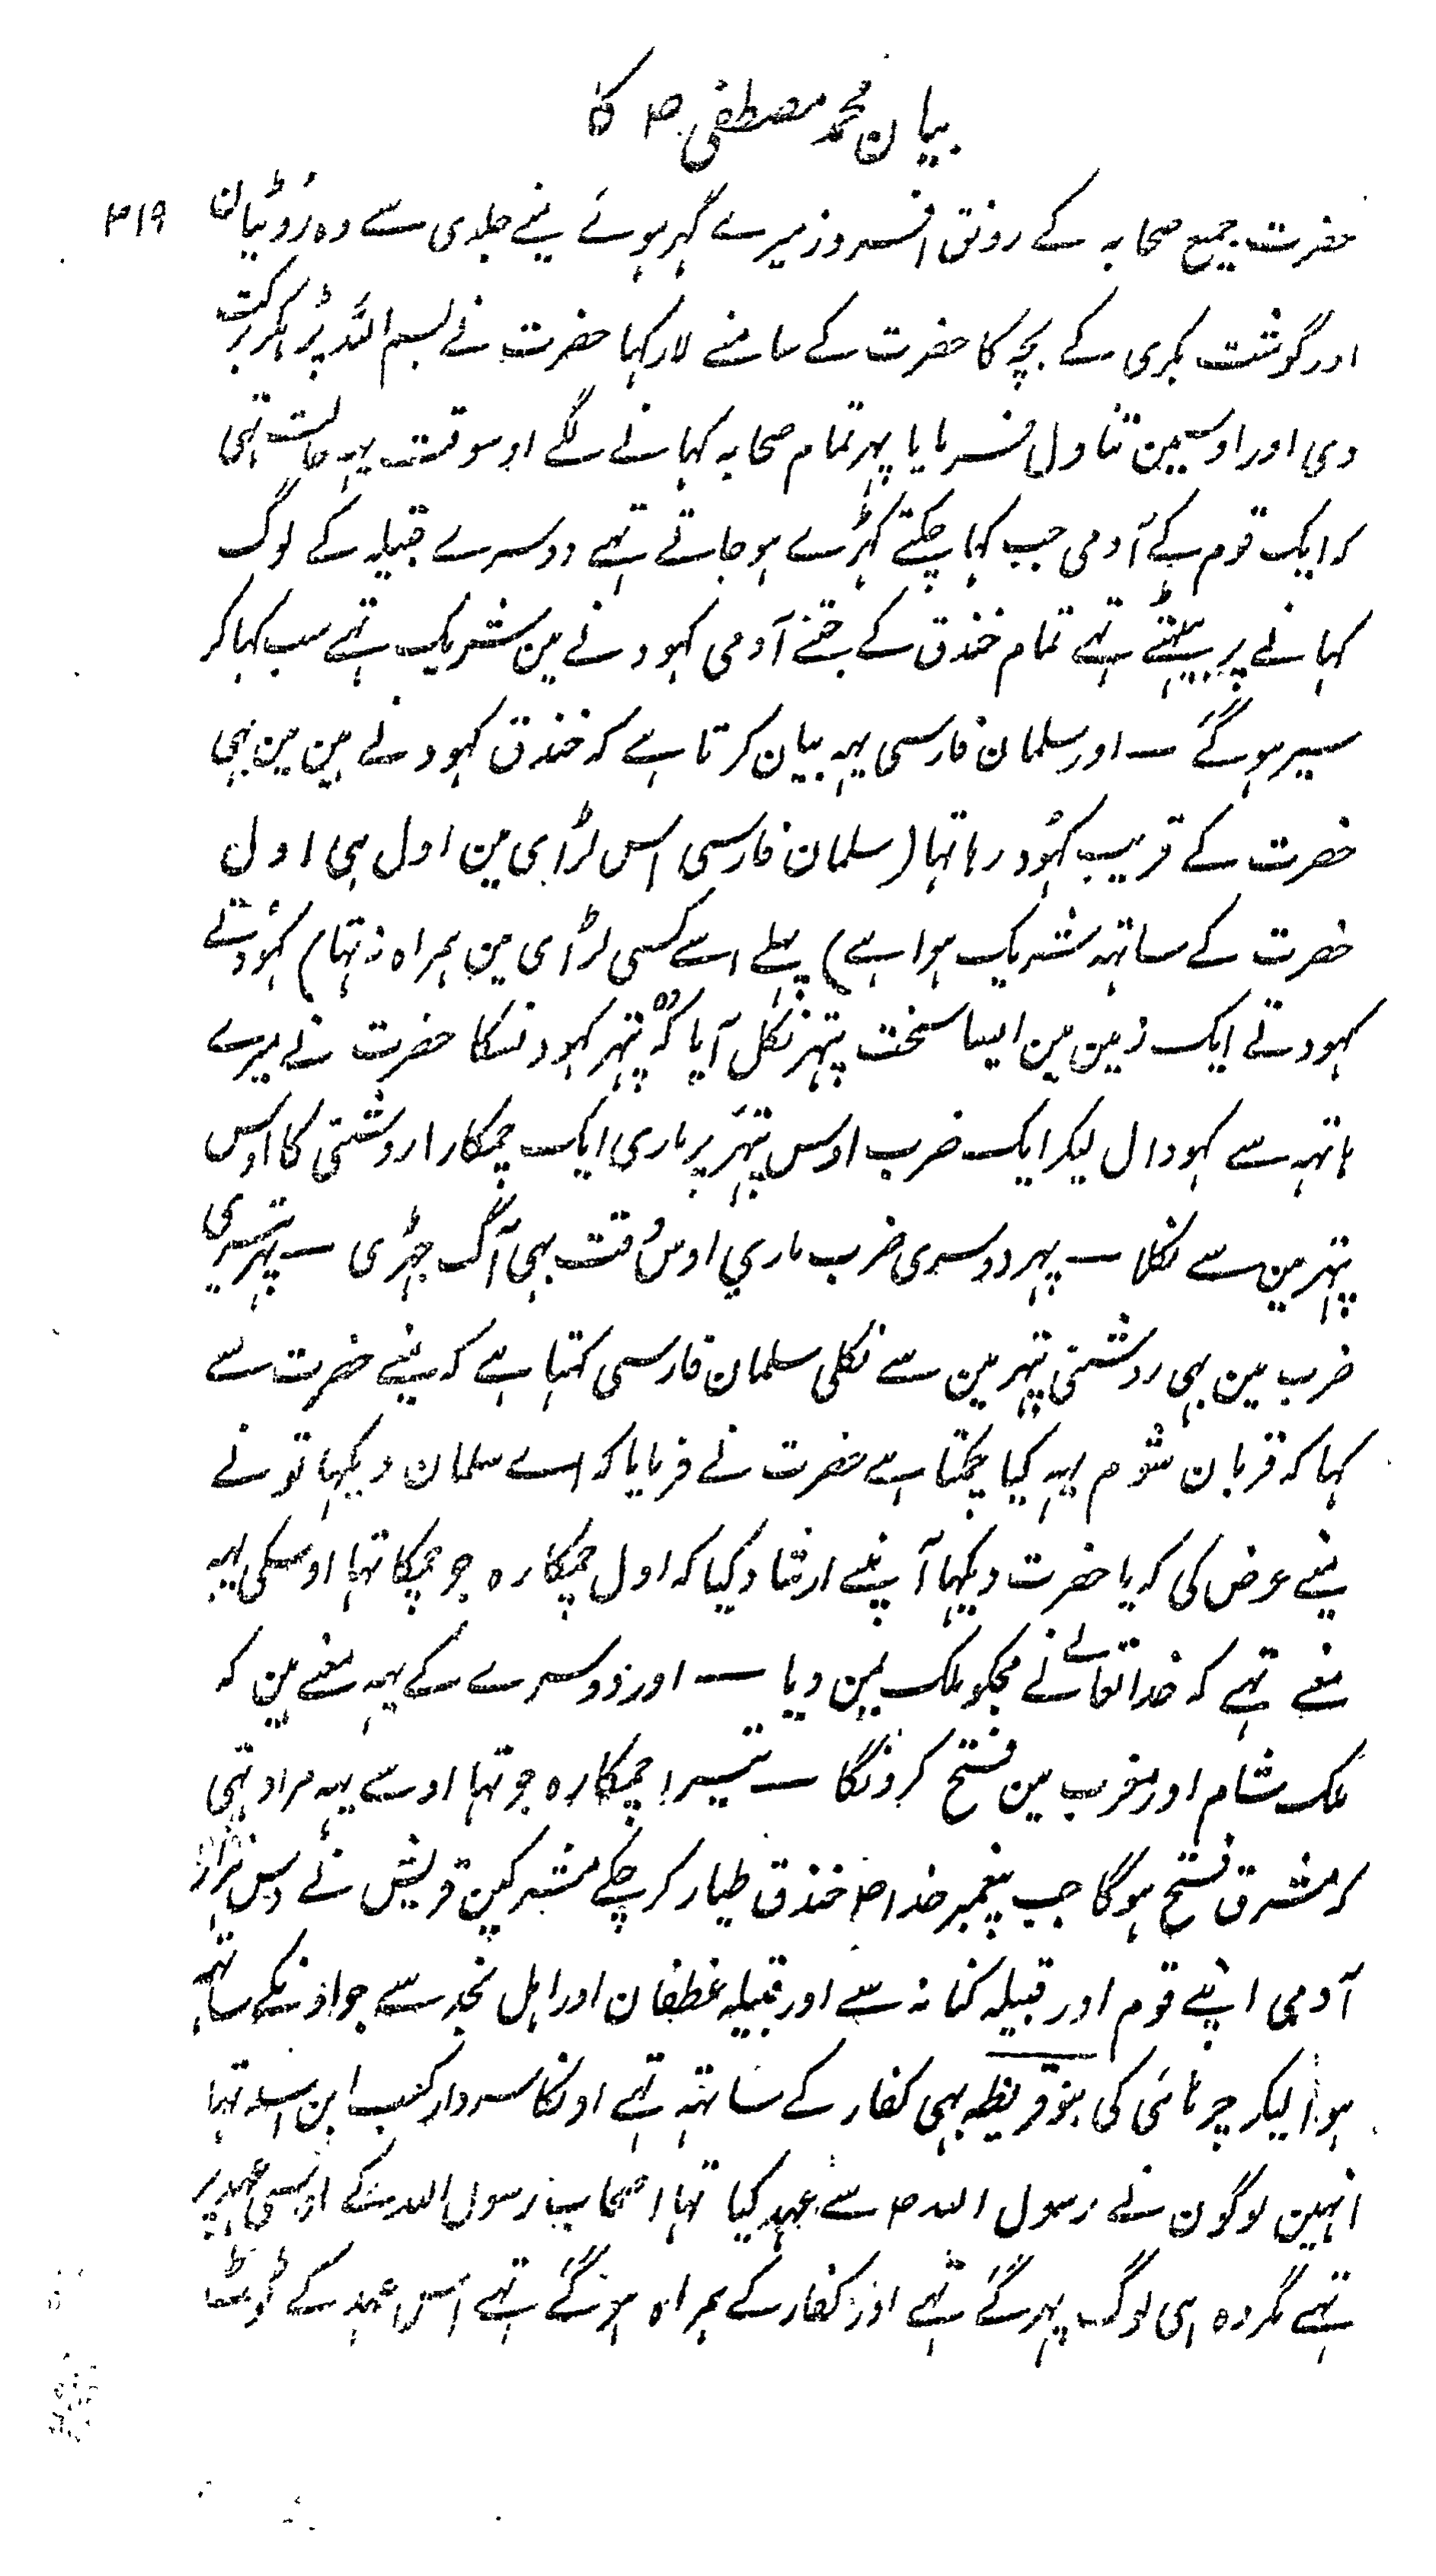 بیان محمد مصطفی ص کا
۳۱۹
حضرت جمیع صحابہ کے رونق افروز میرے گہر ہوئے مینے جلدی سے وہ روٹیان
اور گوشت بکری کے بچہ کا حضرت کے سامنے لا رکہا حضرت نے بسم اللہ پڑہکر برکت
دی اور اوسمین تناول فرمایا پہر تمام صحابہ کہانے لگے اوسوقت یہہ حالت تہی
کہ ایک قوم کے آدمی جب کہا چکتے کہڑے ہو جاتے تہے دوسرے قبیلہ کے لوگ
کہانے پر بیٹہتے تہے تمام خندق کے جتنے آدمی کہودنے مین شریک تہے سب کہا کر
سیر ہو گئے ـــ اور سلمان فارسی یہہ بیان کرتا ہے کہ خندق کہودنے مین مین بہی
حضرت کے قریب کہود رہا تہا (سلمان فارسی اس لڑائی مین اول ہی اول
حضرت کے ساتہہ شریک ہوا ہے) پہلے اسے کسی لڑائی مین ہمراہ نہ تہا) کہودتے
کہودتے ایک زمین مین ایسا سخت پتہر نکل آیا کہ وہ پتہر کہود نسکا حضرت نے میرے
ہاتہہ سے کہودال لیکر ایک ضرب اوس پتہر پر ماری ایک چمکارا روشنی کا اوس
پتہر مین سے نکلا ـــ پہر دوسری ضرب ماری اوسوقت بہی آگ جہڑی ـــ پہر تیسری
ضرب مین بہی روشنی پتہر مین سے نکلی سلمان فارسی کہتا ہے کہ مینے حضرت سے
کہا کہ قربان شوم یہہ کیا چمکتا ہے حضرت نے فرمایا کہ اے سلمان دیکہا تو نے
مینے عرض کی کہ یا حضرت دیکہا آپنے ارشاد کیا کہ اول چمکارہ جو چمکا تہا اوسکی یہہ
معنے تہے کہ خدا تعالے نے مجکو ملک یمن دیا ـــ اور دوسرے کے یہہ معنے مین کہ
ملک شام اور مغرب مین فتح کرونگا ـــ تیسرا چمکارہ جو تہا اوسے یہہ مراد تہی
کہ مشرق فتح ہوگا جب پیغمبر خدا ص خندق طیار کر چکے مشرکین قریش نے دس ہزار
آدمی اپنے قوم اور قبیلہ کنانہ سے اور قبیلہ غطفان اور اہل نجد سے جو اونکے ساتہہ
ہوا لیکر چڑہائی کی بنو قریظہ بہی کفار کے ساتہہ تہے اونکا سردار کعب ابن اسد تہا
انہین لوگون نے رسول اللہ ص سے عہد کیا تہا اصحاب رسول اللہ کے اوسی عہد پر
تہے مگر وہ ہی لوگ پہر گئے تہے اور کفار کے ہمراہ ہو گئے تہے اس عہد کے ٹوٹ